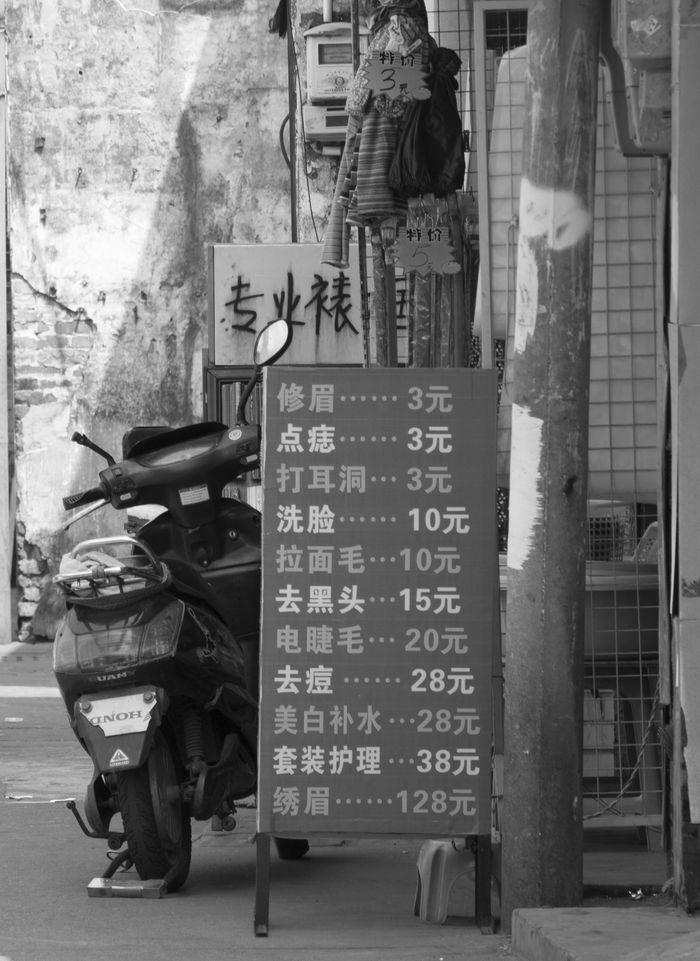 特价
3元
特价
5元
专业裱框
修眉······ 3元
点痣······ 3元
打耳洞··· 3元
洗脸······ 10元
拉面毛···10元
去黑头···15元
电睫毛··· 20元
去痘 ······ 28元
美白补水 ···28元
套装护理 ···38元
绣眉······128元
HOND